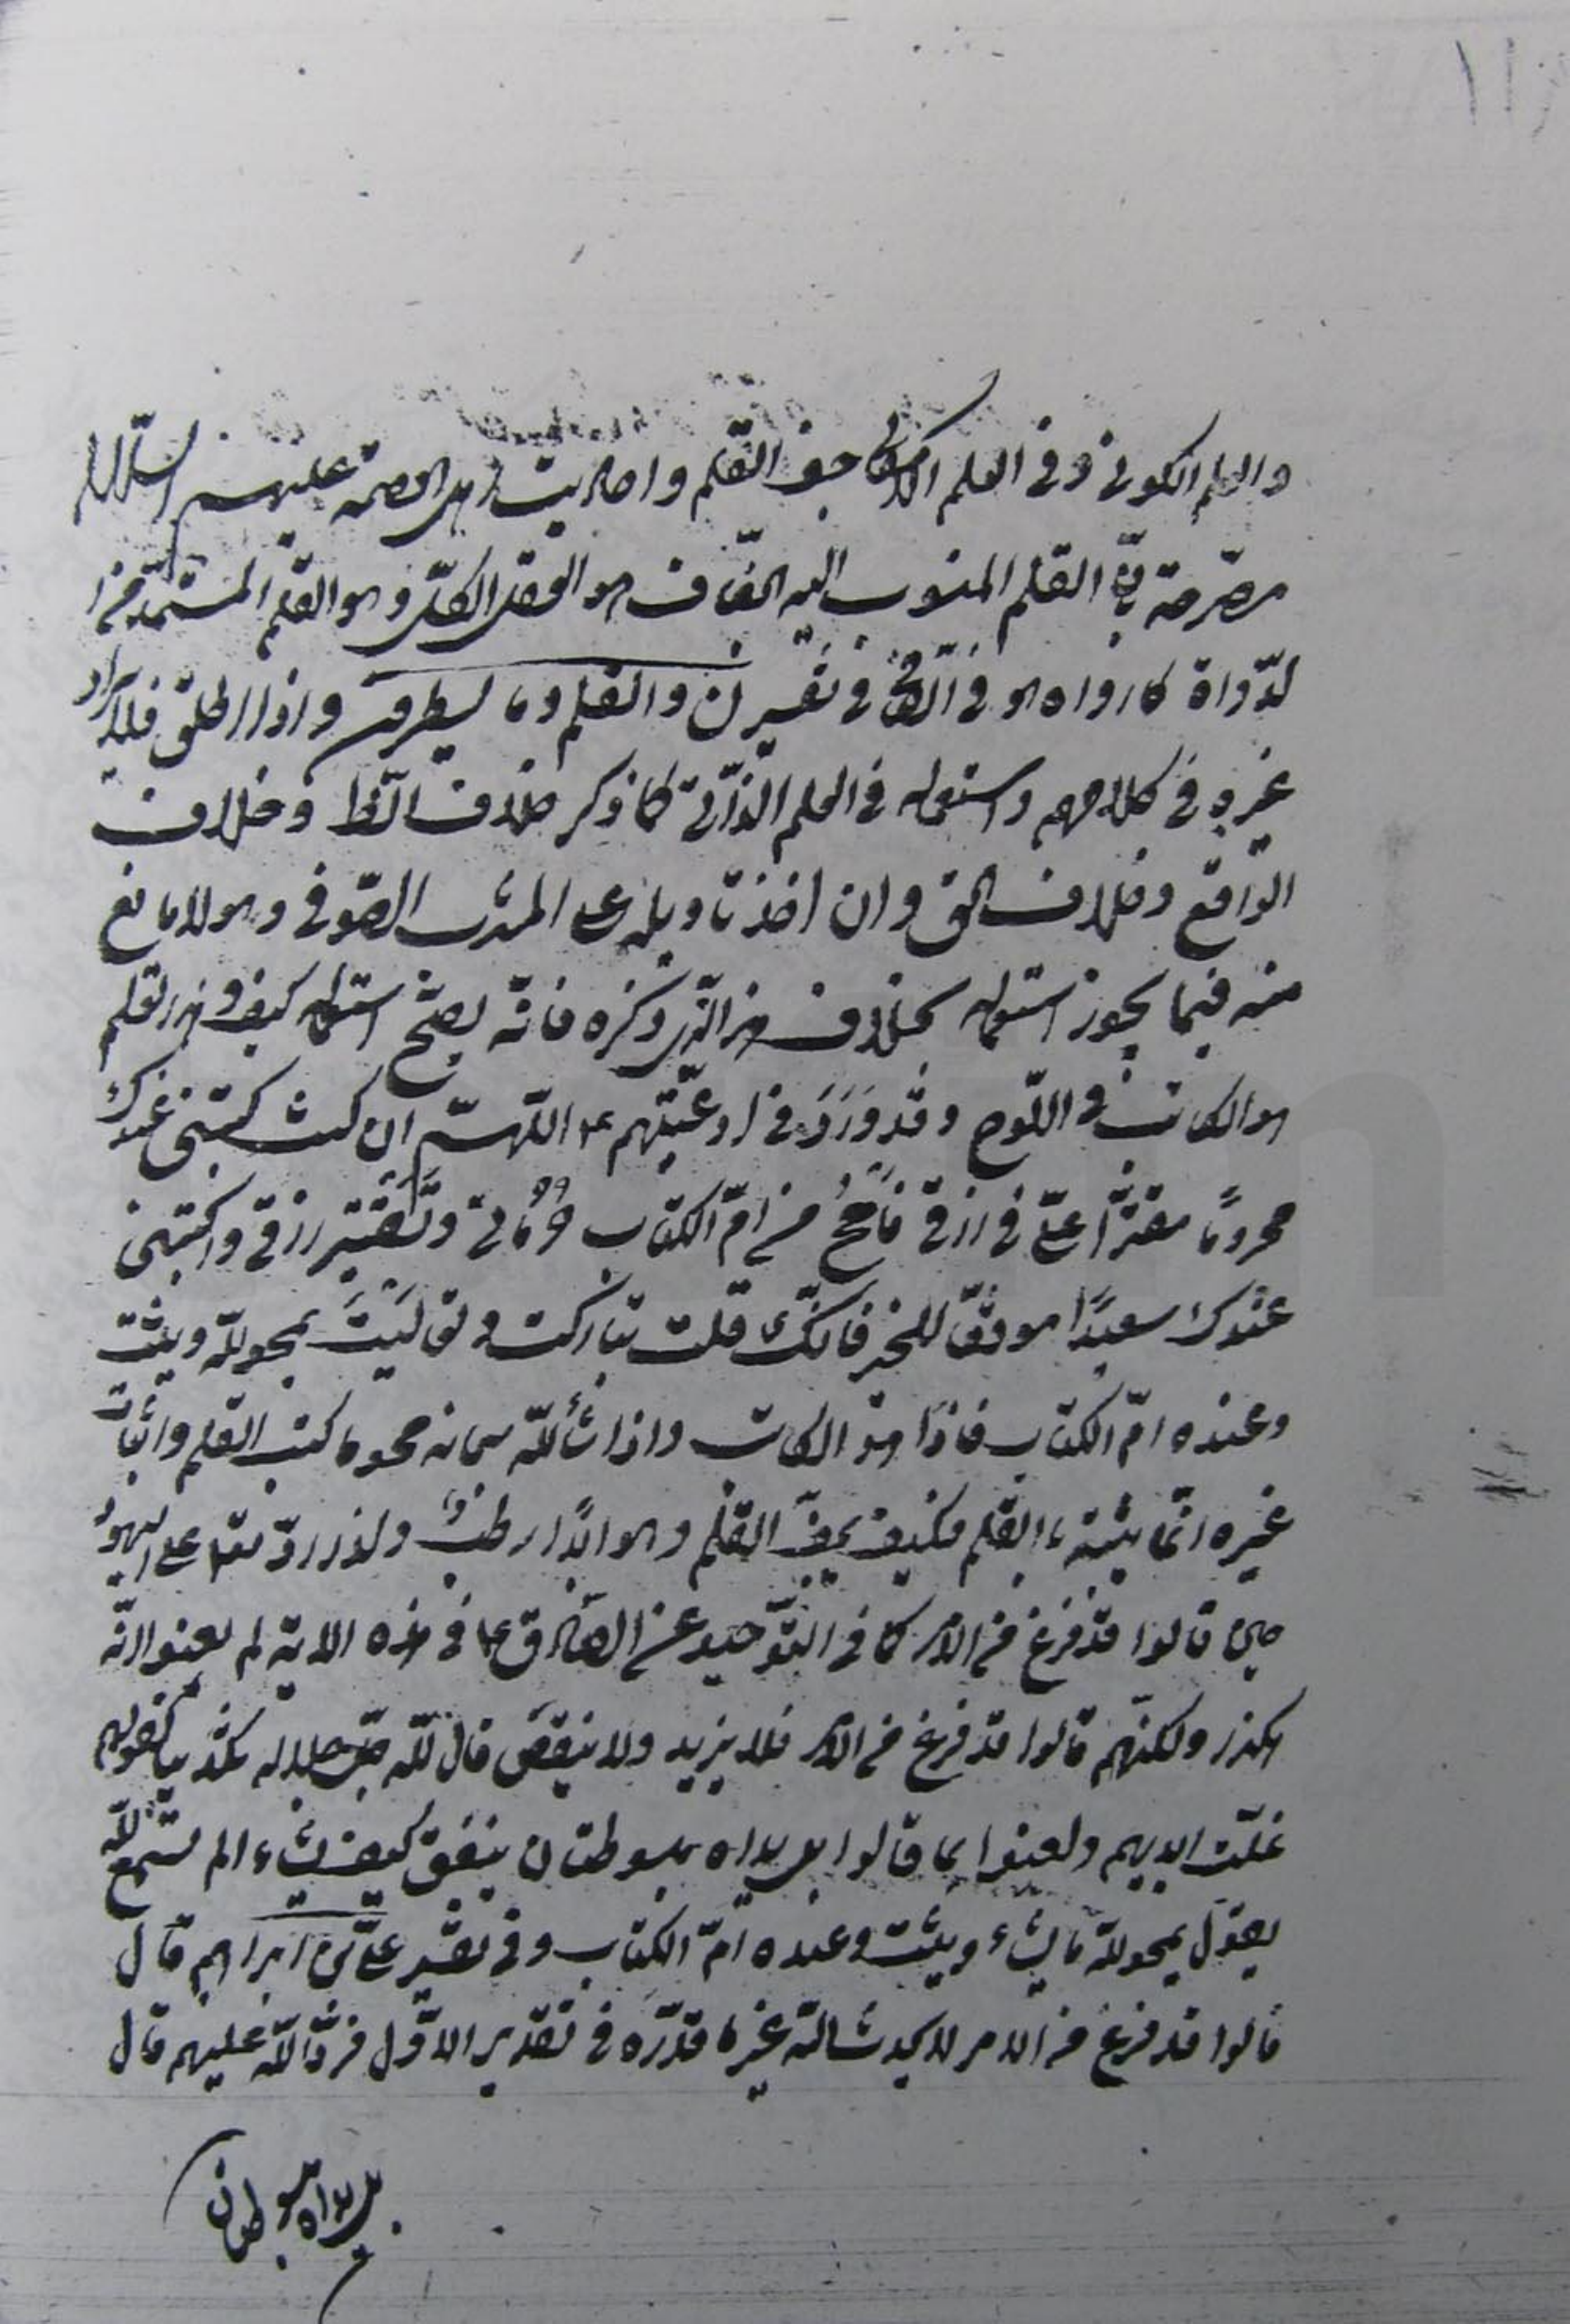 والعلم الكونى و فى العلم الامكانى جف القلم و احاديث اهل العصمة عليهم السلام
مصرّحة بانّ القلم المنسوب اليه الجفاف هو العقل الكلّى و هو القلم المستمدّ من ا
لدّواة كما رواه فى تفسير ن والقلم وما يسطرون و اذا اطلق فلا يراد
غيره فى كلامهم و استعماله فى العلم الذّاتى كما ذكر خلاف الظ و خلاف
الواقع و خلاف الحق و ان اخذ تاويله على المذهب الصّوفى و هو لا مانع
منه فيما يجوز استعماله بخلاف هذا الّذى ذكره فانّه يصحّ استعماله كيف و هذا القلم
هو الكاتب فى اللّوح و قد وَرَدَ فى ادعيّتهم ع اللّهمّ ان كنت كتبتنى عندك
محرومًا مقترًا علىّ فى رزقى فامحُ من امّ الكتاب حرمانى و تقتير رزقى و اكتبنى
عندك سعيدًا موفّقًا للخير فانّك قلت تباركت و تعاليت يمحو اللّه و يثبت
و عنده امّ الكتاب فاذا هو الكاتب و اذا شاء اللّه سبحانه محو ما كتب القلم و اثبات
غيره انّما يثبته بالقلم فكيف يجفّ القلم و هو ابدًا رطب و لذا ردّ تعا على اليهود
حين قالوا قد فرغ من الامر كما فى التوّحيد عن الصّادق ع فى هذه الاية لم يعنوا انّه
هكذا و لكنّهم قالوا قد فرغ من الامر فلا يزيد و لا ينقص قال اللّه جلّ جلاله تكذيبا لقولهم
غلّت ايديهم و لعنوا بما قالوا بل يداه مبسوطتان ينفق كيف يشاء الم تسمع اللّه
يقول يمحو اللّه ما يشاء و يثبت و عنده امّ الكتاب و فى تفسير علىّ بن ابراهيم قال
قالوا قد فرغ من الامر لا يحدث اللّه غير ما قدّره فى تقدير الاوّل فردّ اللّه عليهم قال
بل يداه مبسوطتان